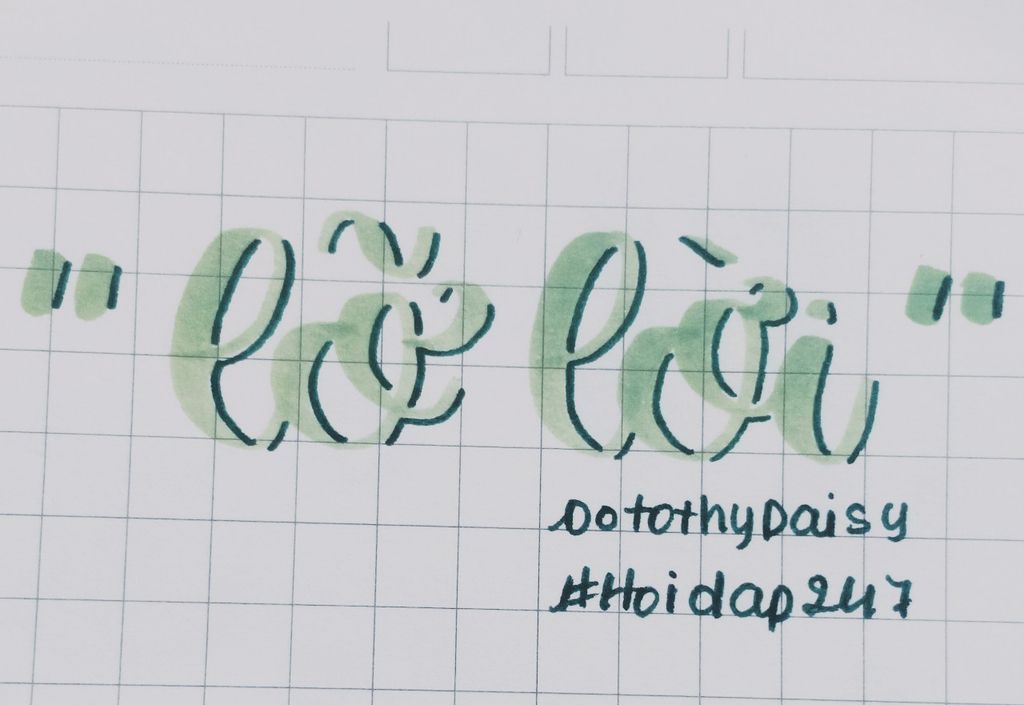 "lỡ lời"
DotothyDaisy
#Hoidap247